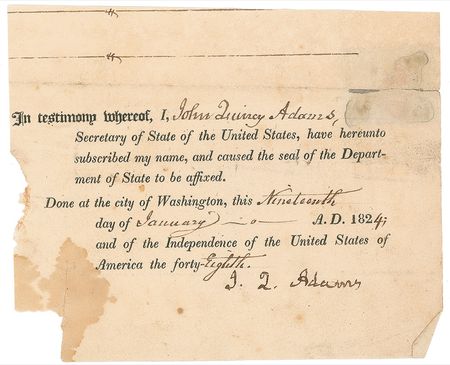 In testimony whereof, I, John Quincy Adams,
Secretary of State of the United States, have hereunto
subscribed my name, and caused the seal of the Depart-
ment of State to be affixed.
Done at the city of Washington, this Nineteenth
day of January A. D. 1824;
and of the Independence of the United States of
America the forty-Eighth.
J. Q. Adams